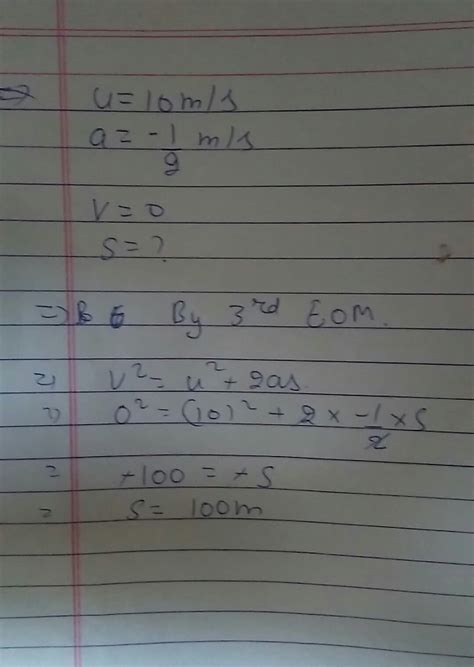 ⇒ u = 10 m/s
a = -1/2 m/s
v = 0
s = ?
⇒ By 3rd EOM.
⇒ v² = u² + 2as
⇒ 0² = (10)² + 2 × -1/2 × s
= +100 = +s
= s = 100m